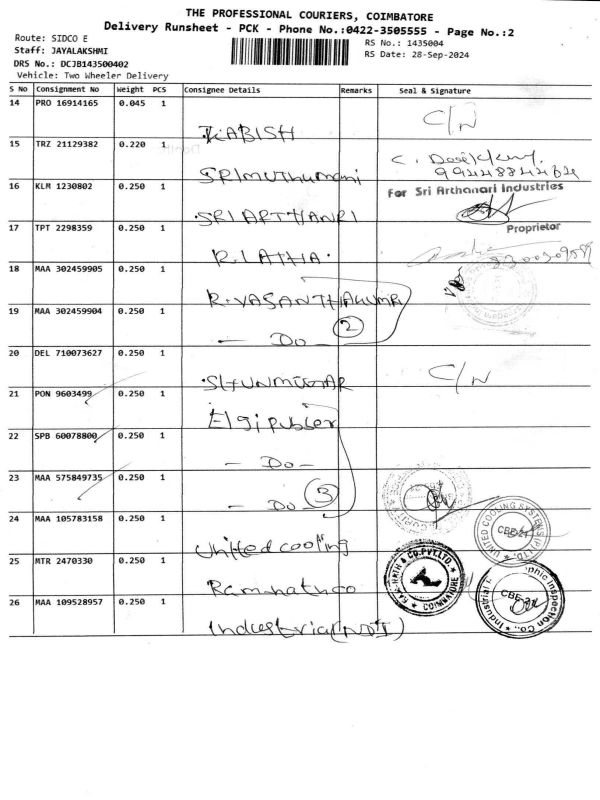 THE PROFESSIONAL COURIERS, COIMBATORE
Delivery Runsheet - PCK - Phone No.:0422-3505555 - Page No.:2
Route: SIDCO E
RS No.: 1435004
Staff: JAYALAKSHMI
RS Date: 28-Sep-2024
DRS No.: DCJB143500402
Vehicle: Two Wheeler Delivery
S No Consignment No Weight PCS Consignee Details Remarks Seal & Signature
14 PRO 16914165 0.045 1 C/N
KABISH
15 TRZ 21129382 0.220 1 C.
SRI muthumani 9944884464
16 KLM 1230802 0.250 1 For Sri Arthanari Industries
SRI ARTHANRI
17 TPT 2298359 0.250 1 Proprietor
R. LATHA.
18 MAA 302459905 0.250 1
R. VASANTHAKUMRI
19 MAA 302459904 0.250 1
- Do - 2
20 DEL 710073627 0.250 1 C/N
SHUNMUGAR
21 PON 9603499 0.250 1
Elgi rubber
22 SPB 60078800 0.250 1
- Do -
23 MAA 575849735 0.250 1
- Do - 3
24 MAA 105783158 0.250 1 UNITED COOLING SYSTEMS (P) LTD. CBE-21
United cooling
25 MTR 2470330 0.250 1 & CO.PVT.LTD. COIMBATORE
Ramnath co
26 MAA 109528957 0.250 1 Industrial Inspection Co., CBE
Industrial (NDT)